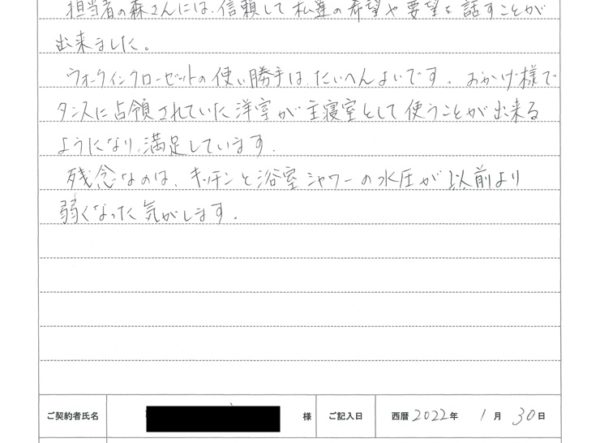 担当者の森さんには、信頼して私達の希望や要望を話すことが
出来ました。
ウォークインクローゼットの使い勝手は、たいへんよいです。おかげ様で
タンスに占領されていた洋室が主寝室として使うことが出来る
ようになり、満足しています。
残念なのは、キッチンと浴室シャワーの水圧が以前より
弱くなった気がします。
ご契約者氏名 様 ご記入日 西暦 2022年 1月 30日